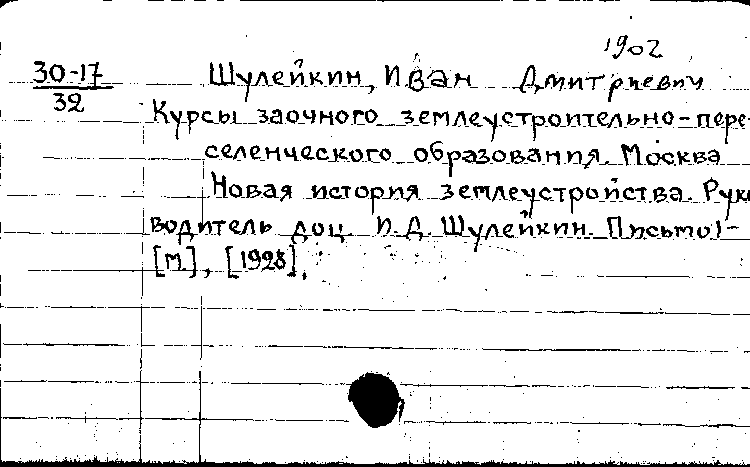 1902
30-17
32
Шулейкин, Иван Дмитриевич
Курсы заочного землеустроительно-пере-
селенческого образования. Москва
Новая история землеустройства. Руко
водитель доц. И.Д. Шулейкин. Письмо 1-
[М.], [1928].